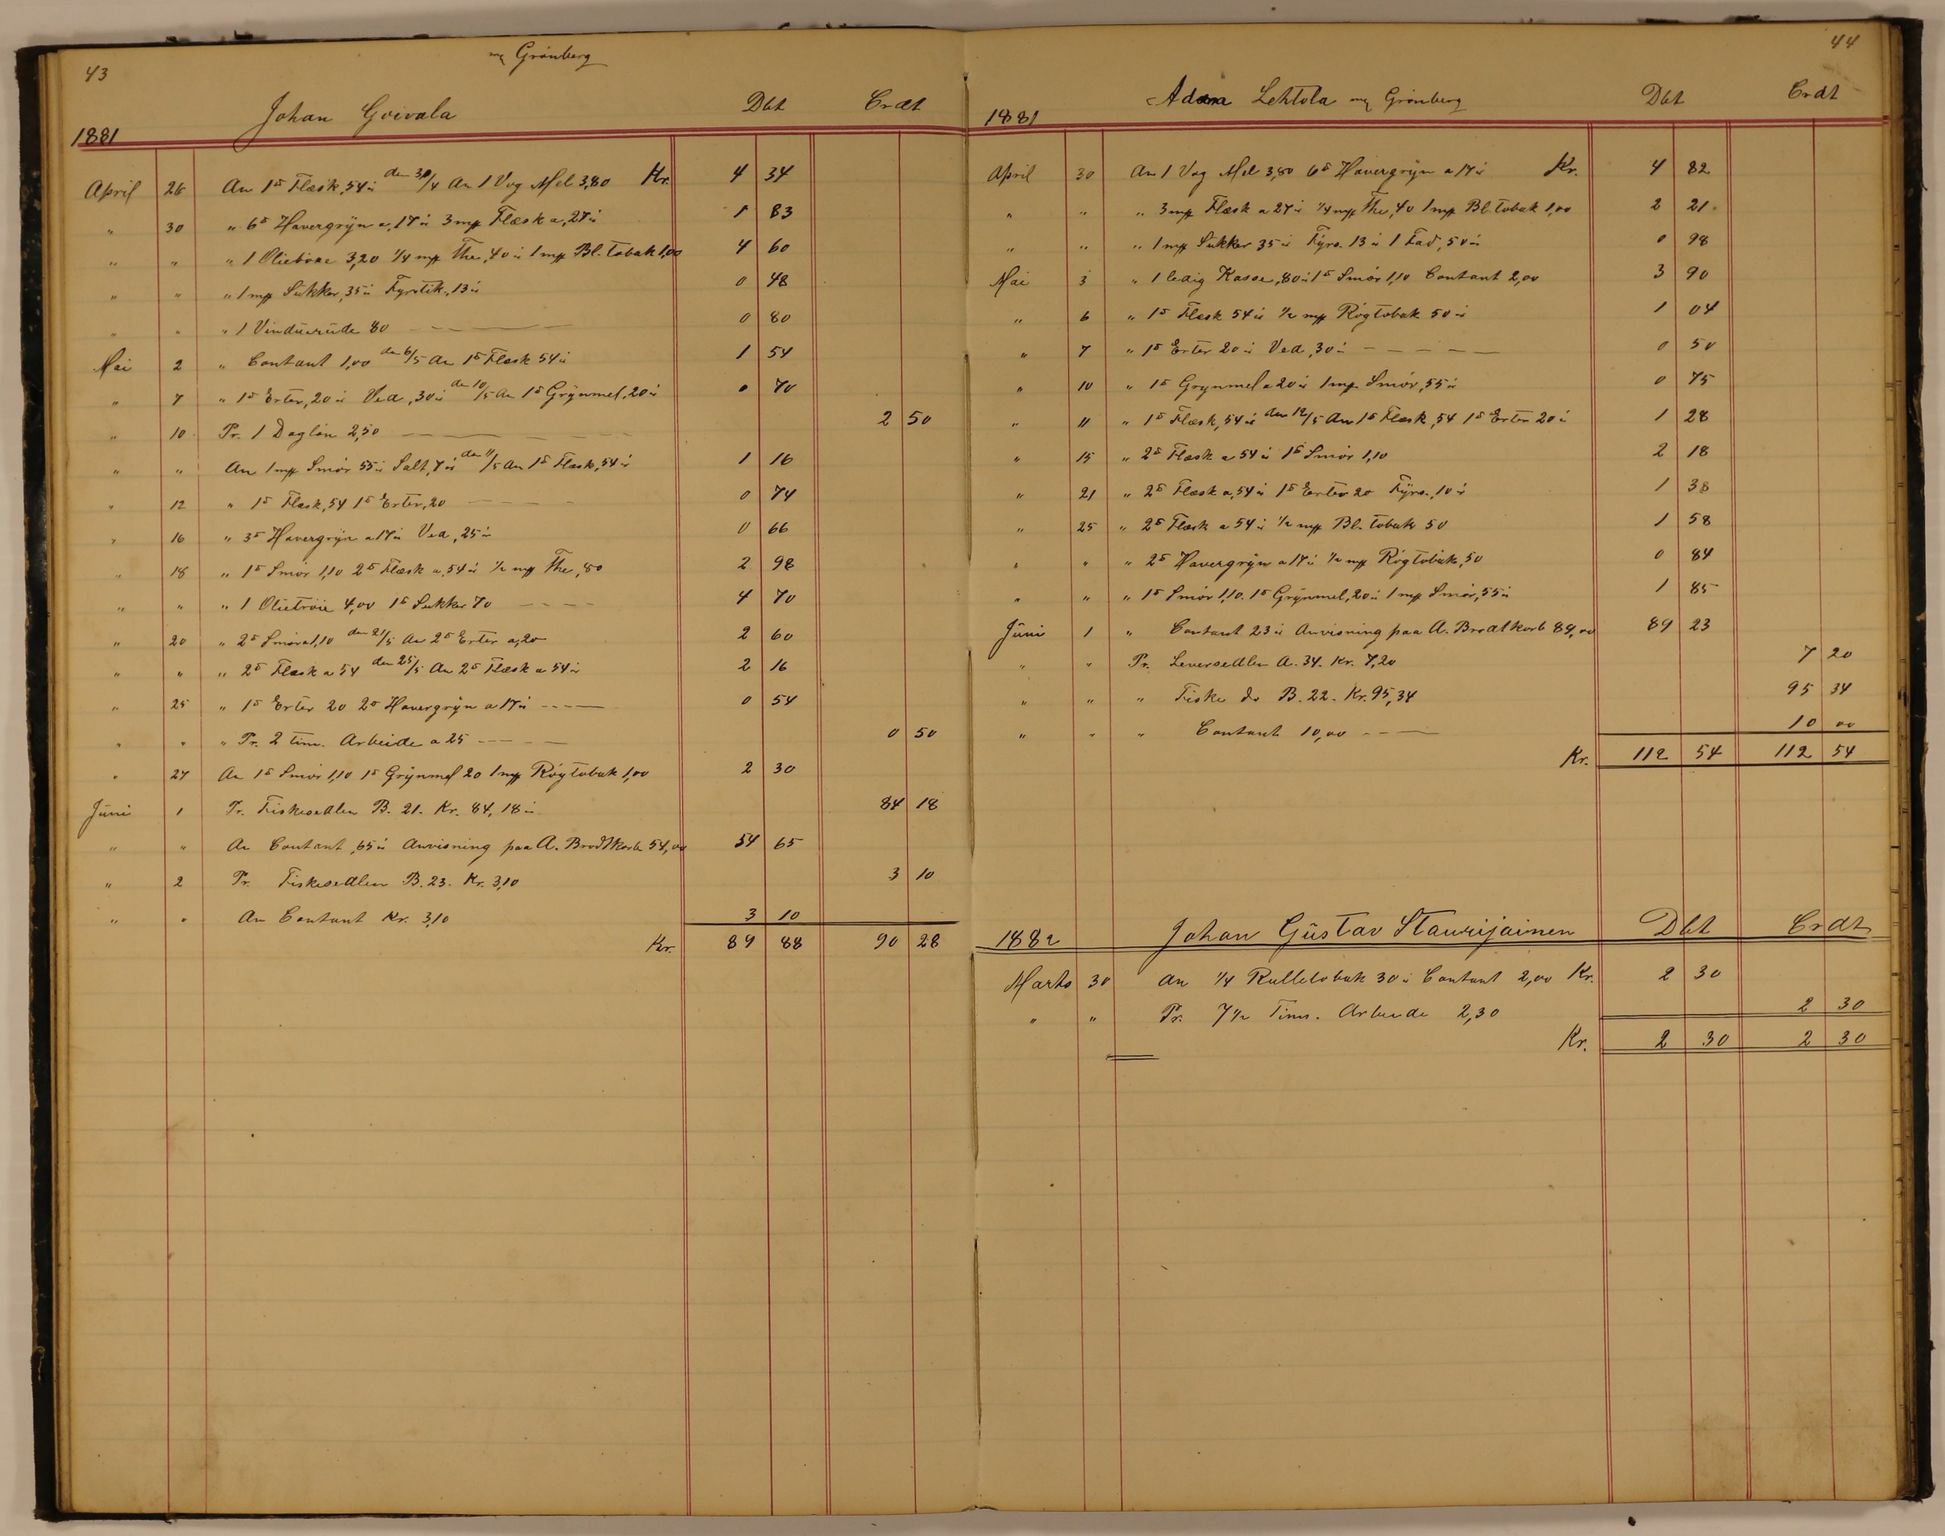 43
mg Grönberg
Johan Goivala Dbt Crdt
1881
April 26 An 1 ℔ Flæsk, 54 ö den 30/4 An 1 Vog Mel 3,80 Kr. 4 34
" 30 " 6 ℔ Havergrÿn a, 17 ö 3 mƿ Flæsk a, 27 ö 1 83
" " " 1 Oliebuxe 3,20 1/4 mƿ The, 40 ö 1 mƿ Bl. tobak 1,00 4 60
" " " 1 mƿ Sukker, 35 ö Fyrstik, 13 ö 0 48
" " " 1 Vinduerude 80 0 80
Mai 2 " Contant 1,00 den 6/5 An 1 ℔ Flæsk 54 ö 1 54
" 7 " 1 ℔ Erter, 20 ö Ved, 30 ö den 10/5 An 1 ℔ Grÿnmel, 20 ö 0 70
" 10 Pr. 1 Daglön 2,50 2 50
" " An 1 mƿ Smör 55 ö Salt, 7 ö den 11/5 An 1 ℔ Flæsk, 54 ö 1 16
" 12 " 1 ℔ Flæsk, 54 1 ℔ Erter, 20 0 74
" 16 " 3 ℔ Havergrÿn a 17 ö Ved, 25 ö 0 66
" 18 " 1 ℔ Smör 1,10 2 ℔ Flæsk a, 54 ö 1/2 mƿ The, 80 2 98
" " " 1 Olietröie 4,00 1 ℔ Sukker 70 4 70
" 20 " 2 ℔ Smör a 1,10 den 21/5 An 2 ℔ Erter a, 20 2 60
" " " 2 ℔ Flæsk a 54 den 25/5 An 2 ℔ Flæsk a 54 ö 2 16
" 25 " 1 ℔ Erter 20 2 ℔ Havergrÿn a 17 ö 0 54
" " " Pr. 2 tim. Arbeide a 25 0 50
" 27 An 1 ℔ Smör 1,10 1 ℔ Grÿnmel 20 1 mƿ Rögtobak 1,00 2 30
Jüni 1 Pr. Fiskesedlen B. 21. Kr. 84, 18 ö 84 18
" " An Contant, 65 ö Anvisning paa A. Brodtkorb 54,00 54 65
" 2 Pr. Fiskesedlen B. 23. Kr. 3,10 3 10
" " An Contant Kr. 3,10 3 10
Kr. 89 88 90 28
44
Adam Lehtola mg Grönberg Dbt Crdt
1881
April 30 An 1 Vog Mel 3,80 6 ℔ Havergrÿn a 17 ö Kr. 4 82
" " " 3 mƿ Flæsk a 27 ö 1/4 mƿ The, 40 1 mƿ Bl. tobak 1,00 2 21
" " " 1 mƿ Sukker 35 ö Fÿrs. 13 ö 1 Fad, 50 ö 0 98
Mai 3 " 1 ledig Kasse, 80 ö 1 ℔ Smör 1,10 Contant 2,00 3 90
" 6 " 1 ℔ Flæsk 54 ö 1/2 mƿ Rögtobak 50 ö 1 04
" 7 " 1 ℔ Erter 20 ö Ved, 30 ö 0 50
" 10 " 1 ℔ Grynmel a 20 ö 1 mƿ Smör, 55 ö 0 75
" 11 " 1 ℔ Flæsk, 54 ö den 12/5 An 1 ℔ Flæsk, 54 1 ℔ Erter 20 ö 1 28
" 15 " 2 ℔ Flæsk a 54 ö 1 ℔ Smör 1,10 2 18
" 21 " 2 ℔ Flæsk a, 54 ö 1 ℔ Erter 20 Fÿrs., 10 ö 1 38
" 25 " 2 ℔ Flæsk a 54 ö 1/2 mƿ Bl. tobak 50 1 58
" " " 2 ℔ Havergrÿn a 17 ö 1/2 mƿ Rögtobak, 50 0 84
" " " 1 ℔ Smör 1,10. 1 ℔ Grÿnmel, 20 ö 1 mƿ Smör, 55 ö 1 85
Jüni 1 " Contant 23 ö Anvisning paa A. Brodtkorb 89,00 89 23
" " Pr. Leversedlen A. 34. Kr. 7,20 7 20
" " " Fiske do B. 22. Kr. 95,34 95 34
" " " Contant 10,00 10 00
Kr. 112 54 112 54
1882 Johan Güstav Staurijainen Dbt Crdt
Marts 30 An 1/4 Rulletobak 30 ö Contant 2,00 Kr. 2 30
" " Pr. 7 1/2 Tims. Arbeide 2,30 2 30
Kr. 2 30 2 30